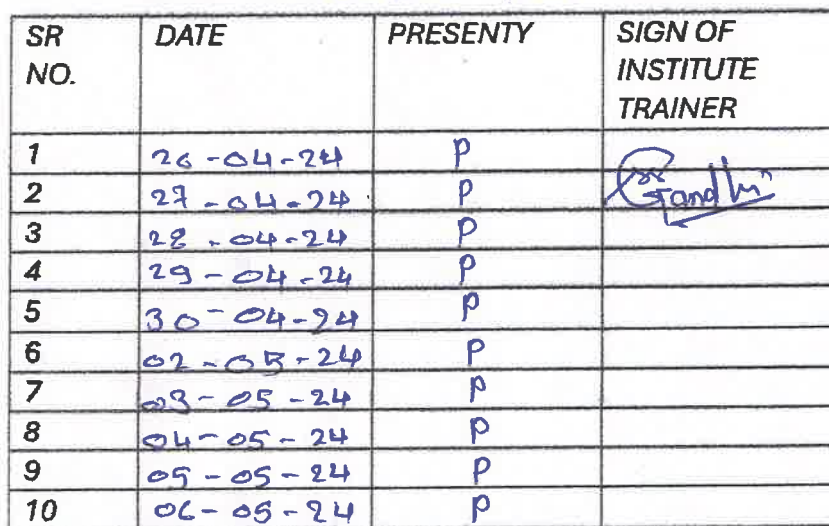 SR NO. DATE PRESENTY SIGN OF INSTITUTE TRAINER
1 26-04-24 P
2 27-04-24 P Gandhi
3 28-04-24 P
4 29-04-24 P
5 30-04-24 P
6 02-05-24 P
7 03-05-24 P
8 04-05-24 P
9 05-05-24 P
10 06-05-24 P